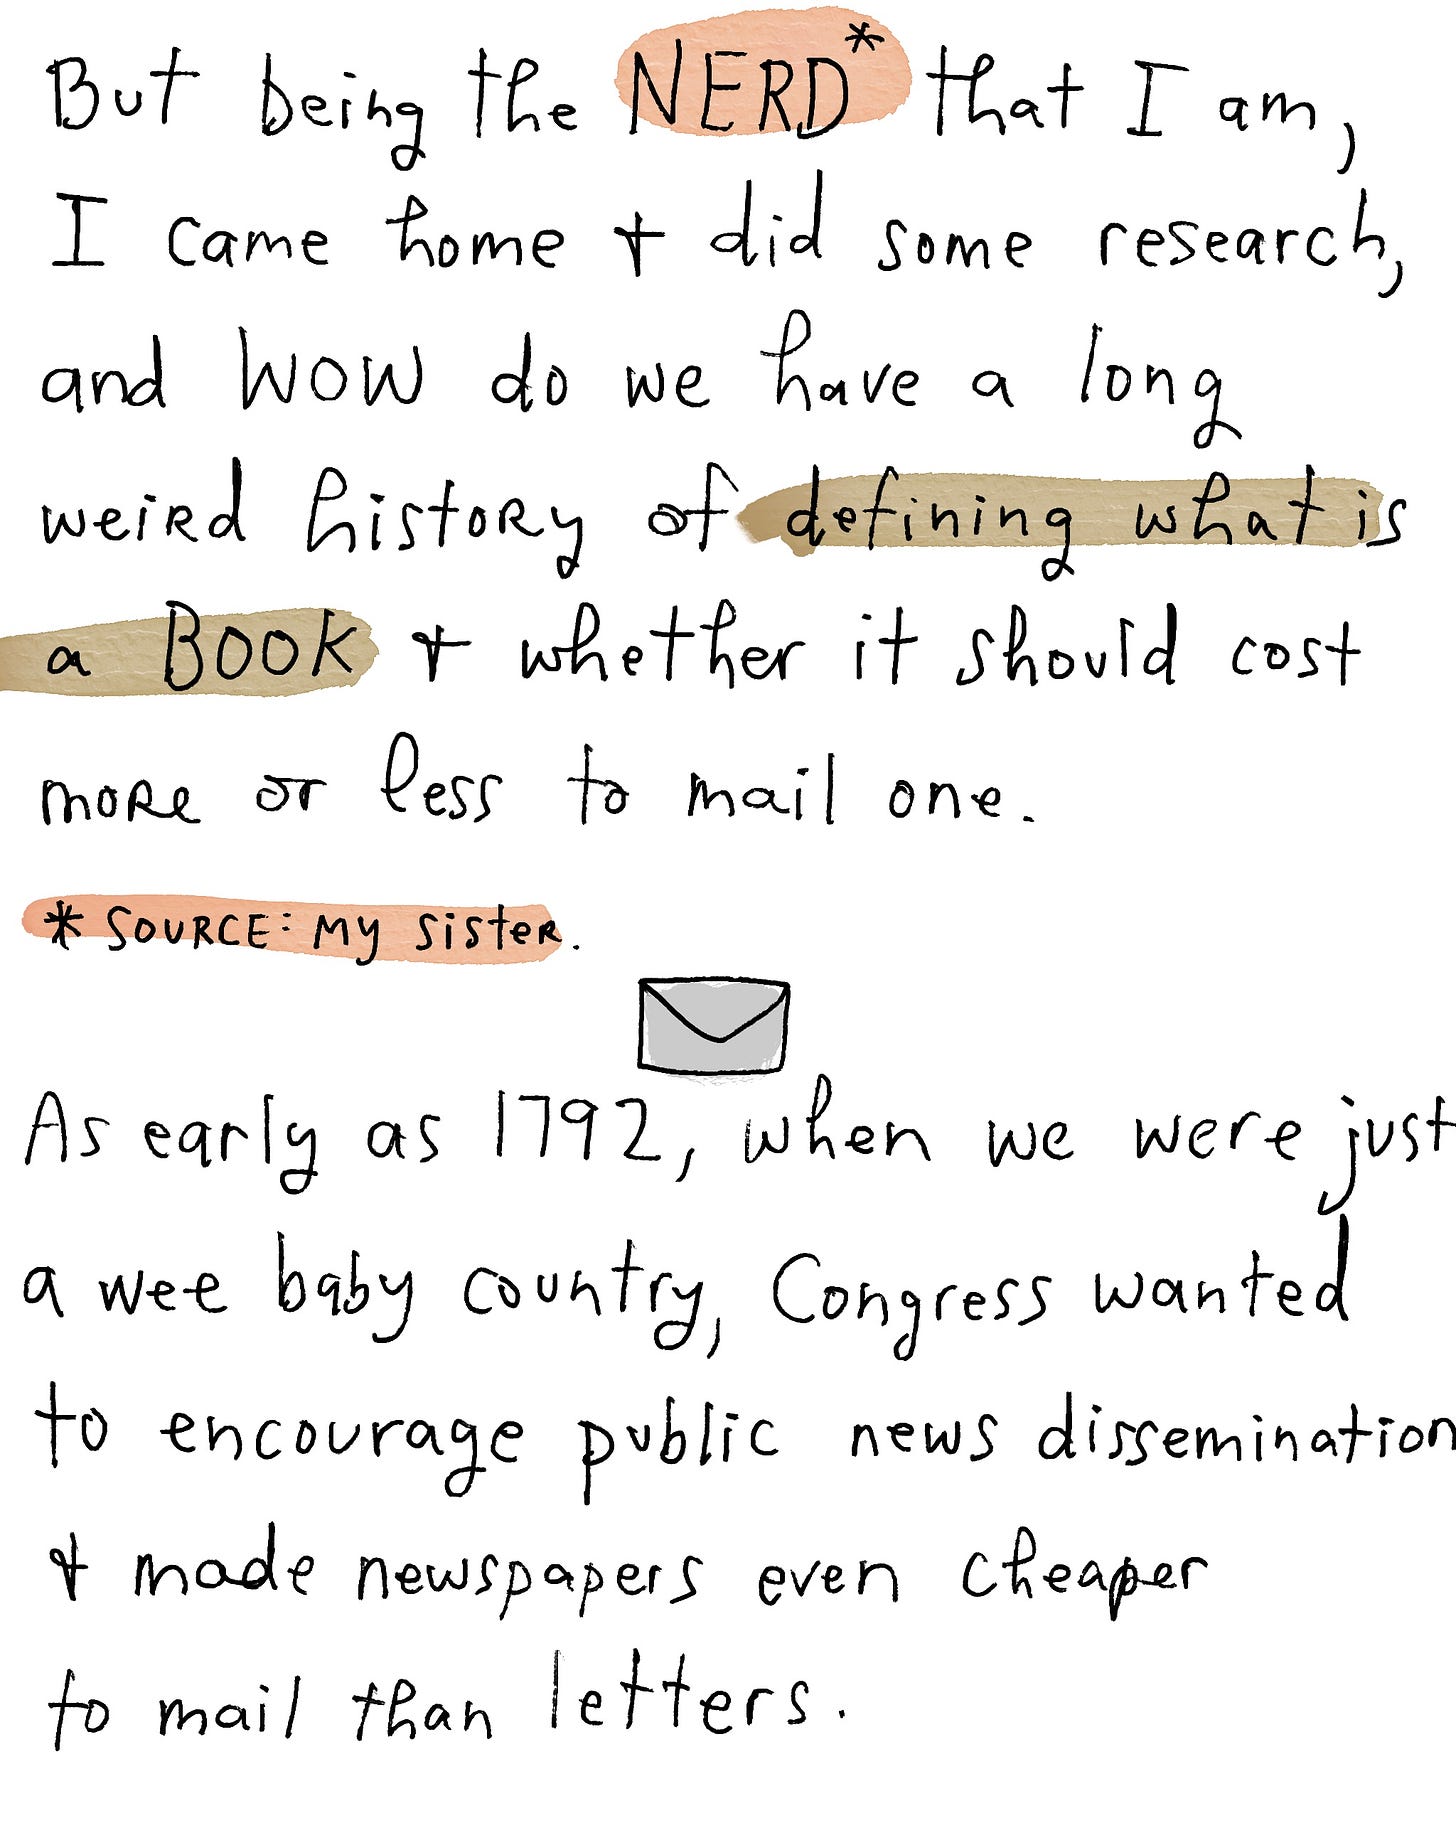 But being the NERD* that I am,
I came home + did some research,
and WOW do we have a long
weird history of defining what is
a BOOK + whether it should cost
more or less to mail one.
* SOURCE: My sister.
As early as 1792, when we were just
a wee baby country, Congress wanted
to encourage public news dissemination
+ made newspapers even cheaper
to mail than letters.